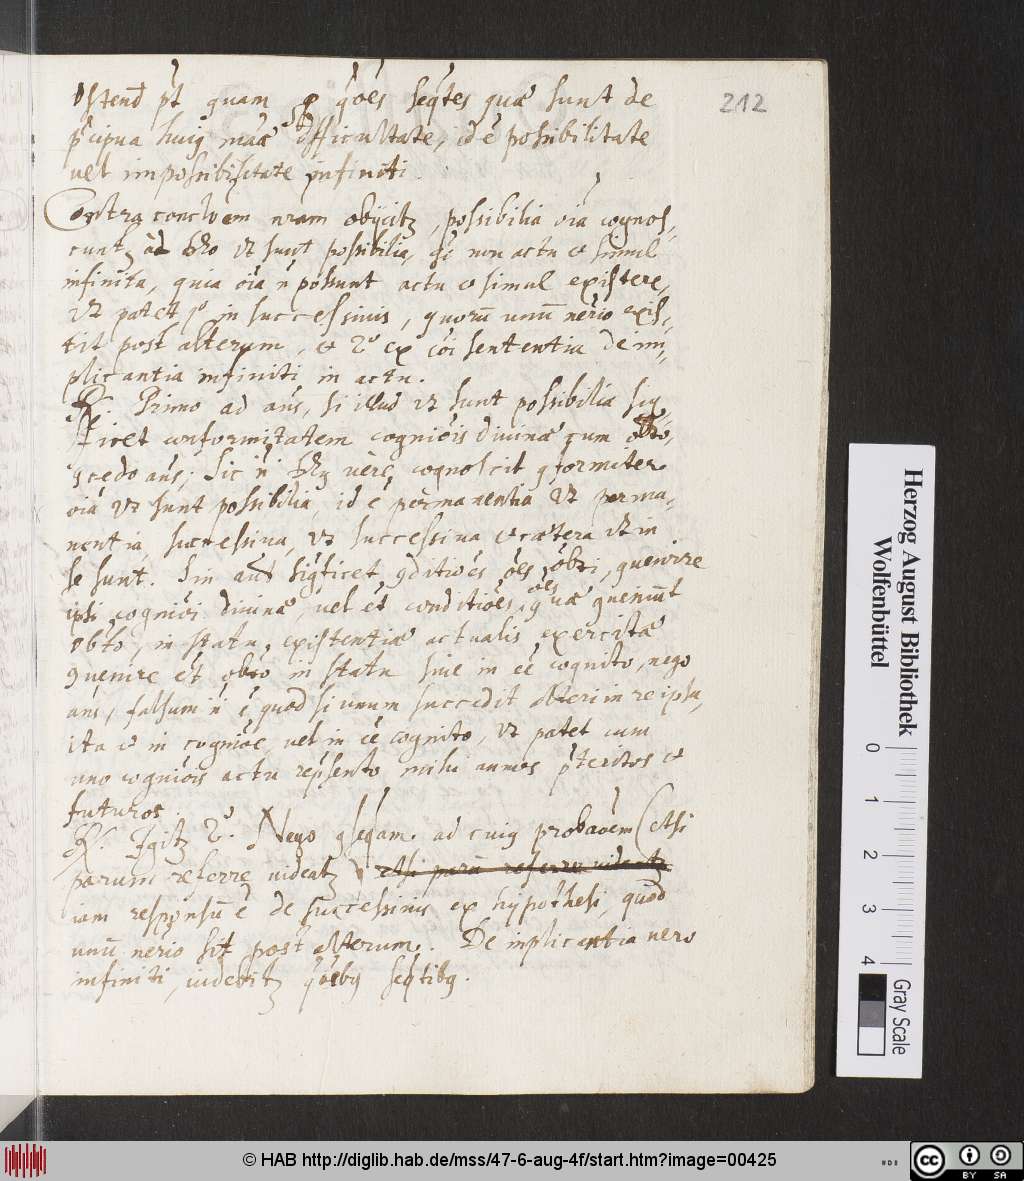 212
ostend pt quam p qoes seqtes quae sunt de
pcipua huig maae difficultate, id e possibilitate
vel impossibilitate infiniti.
Contra concluem nram obijcitz, possibilia oia cognos,,
cuntz ut sunt possibilia, non actu et simul
infinita, quia oia n possunt actu et simul existere,
ut patet 1o in successivis, quoru unu nerio exis,,
tit post alterum, et 2o ex coi sententia de im,,
plicantia infiniti in actu.
R. Primo ad ans, si illud ut sunt possibilia sig,,
ficet conformitatem cogniois divinae cum obto,
gcedo ans; sic n cognoscit gformiter
oia ut sunt possibilia, id e permanentia ut perma,,
nentia, successiva, ut successiva et caetera ut in
se sunt. Sin aut sigficet gditioes oes obti, guenire
ipsi cognioi divinae, vel et conditioes oes quae gueniut
obto, in statu existentiae actualis exercitae
guenire et obto in statu sive in ee cognito, nego
ans, falsum n e quod si unum succedit alteri in re ipsa,
ita et in cognioe, vel in ee cognito, ut patet cum
uno cogniois actu repsento mihi annos pteritos et
futuros.
R. Igitz 2o. Nego gseqam. ad cuig probaoem (etsi
parum referre videatz etsi paru referre videatz
iam responsu e de successivis ex hypothesi, quod
unu nerio sit post alterum. De implicantia vero
infiniti, videbitz qoeibg seqtibg.
Herzog August Bibliothek
Wolfenbüttel
0 1 2 3 4
Gray Scale
© HAB http://diglib.hab.de/mss/47-6-aug-4f/start.htm?image=00425
cc BY SA